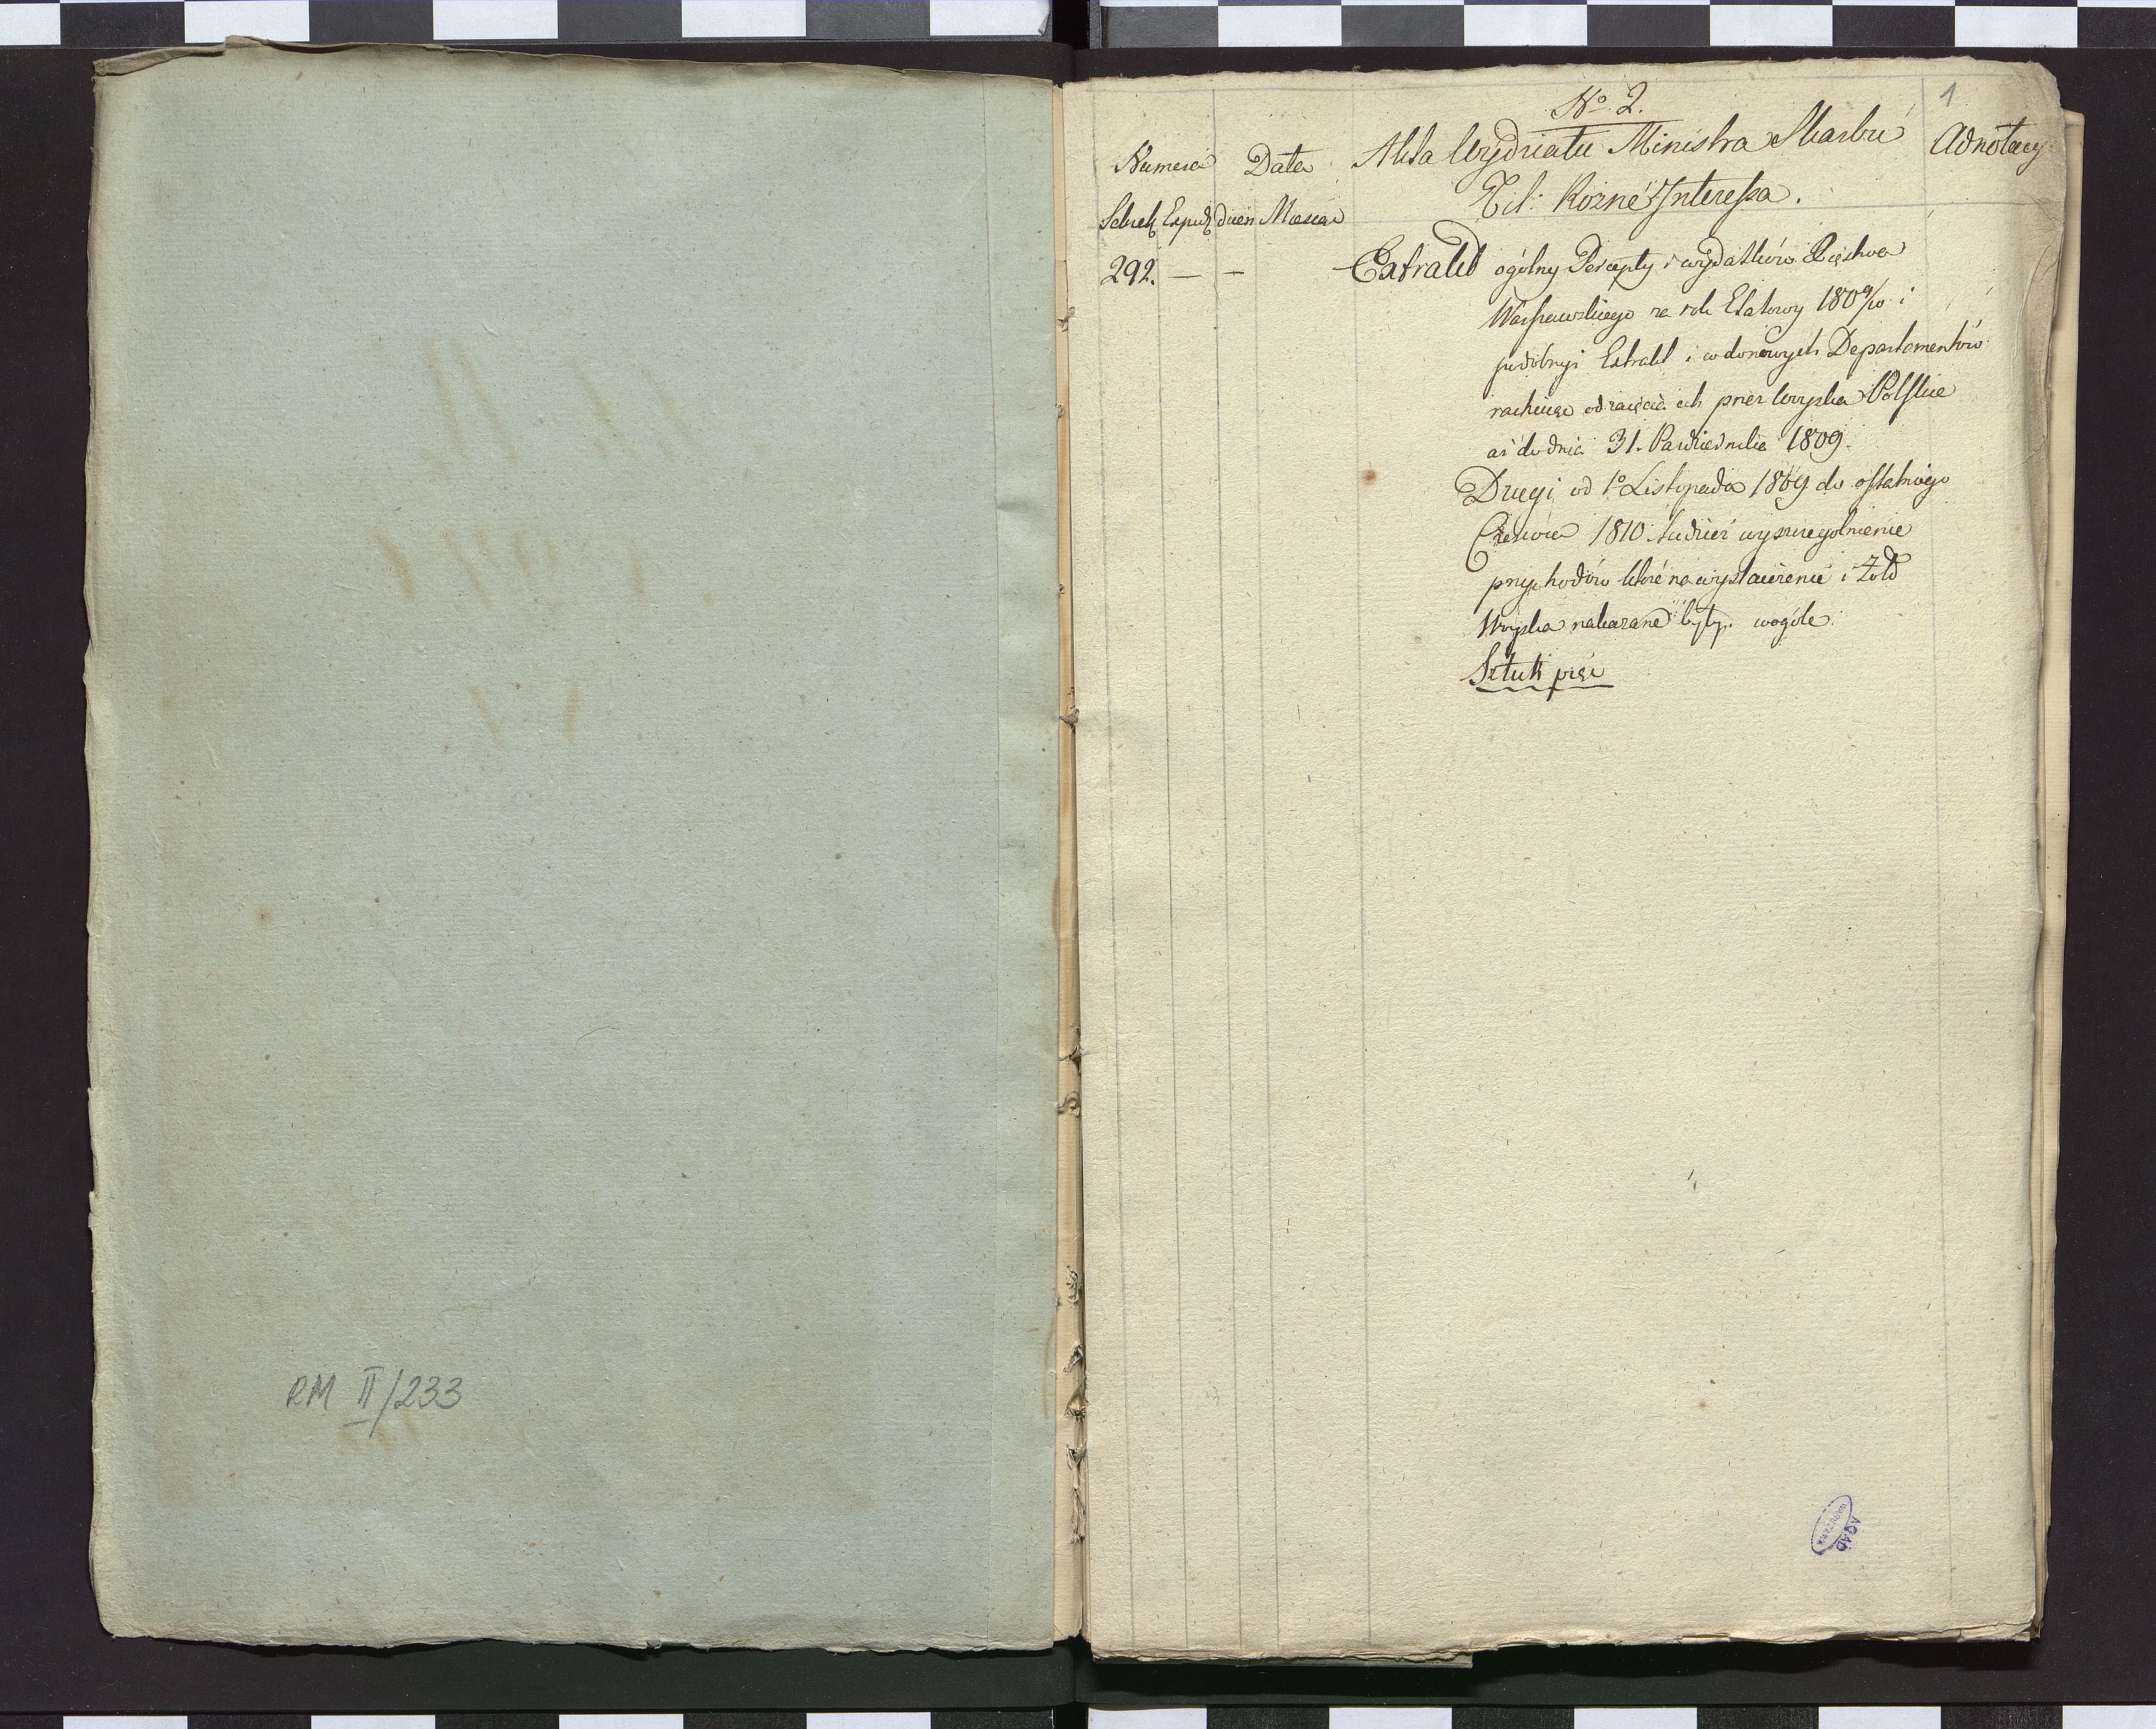 RM II/233
1
No 2.
Numera Data Akta Wydziału Ministra Skarbu Adnotacy
Sekret Exped dzien Miesiac Tit: Rozné Interessa.
292. — — Extrakt ogólny Percepty i wydatków Xięstwa
Warszawskiego za rok Etatowy 1809/10 i
podobnyi Extrakt i co donowych Departamentów
rachuiąc od zaięcia ich przez Woyska Polskie
aż do dnia 31. Pazdziernika 1809.
Drugi od 1o Listopada 1809 do ostatniego
Czerwca 1810. tudzież wyszczegolnienie
przychodów które na wystawienie i Żołd
Woyska nakazane były. wogóle.
Sztuk pięć
AGAD
WARSZAWA